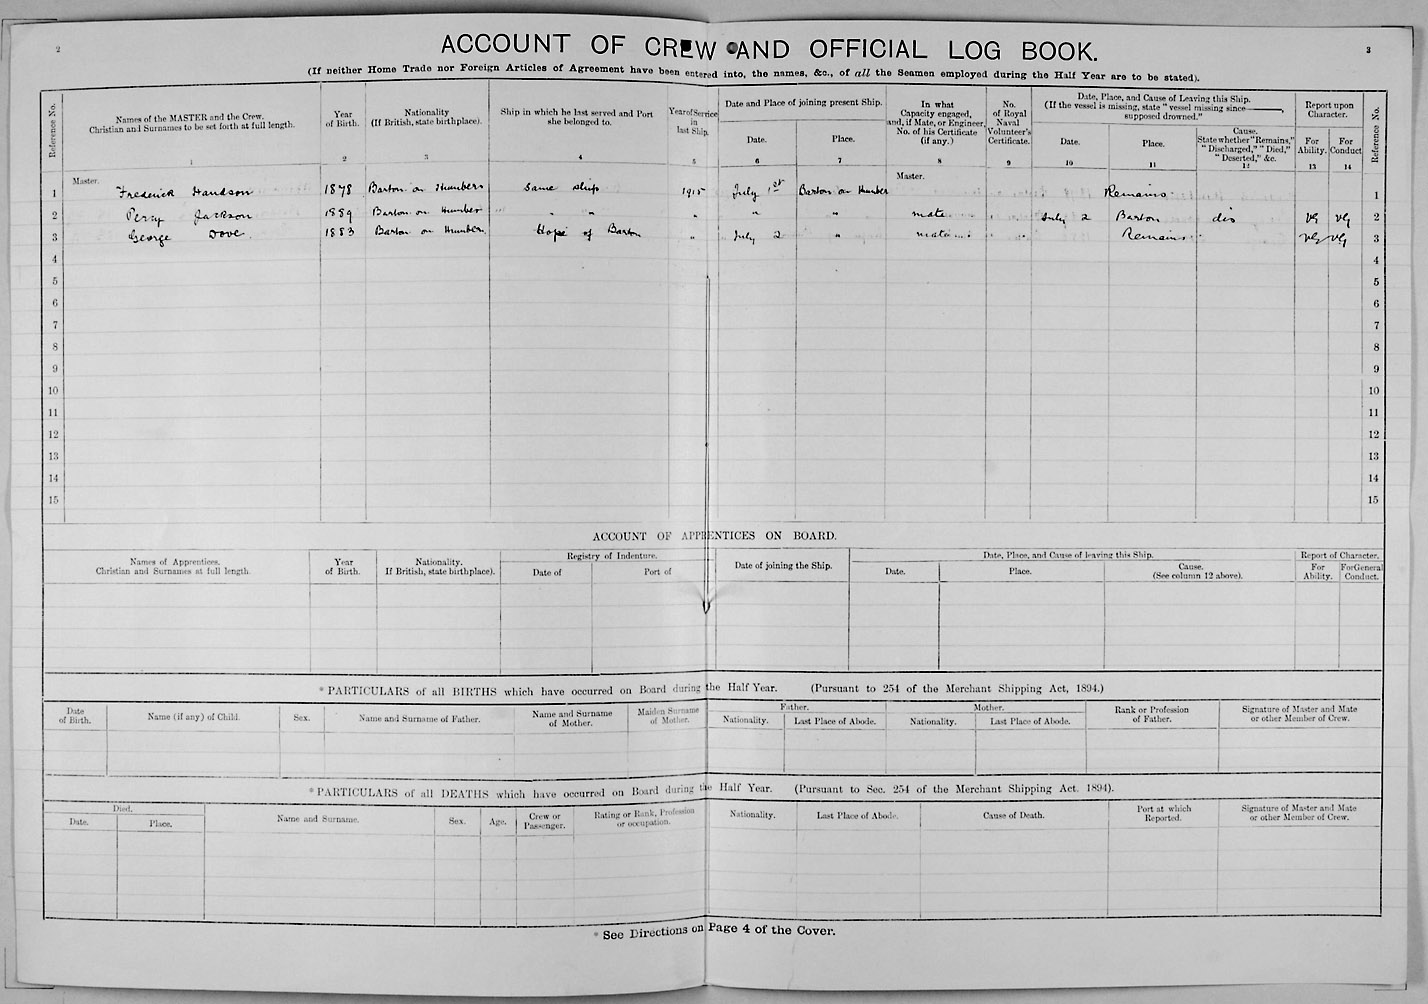 2
3
ACCOUNT OF CREW AND OFFICIAL LOG BOOK.
(If neither Home Trade nor Foreign Articles of Agreement have been entered into, the names, &c., of all the Seamen employed during the Half Year are to be stated).
Reference No.
Names of the MASTER and the Crew.
Christian and Surnames to be set forth at full length.
1
Year
of Birth.
2
Nationality
(If British, state birthplace).
3
Ship in which he last served and Port
she belonged to.
4
Year of Service
in
last Ship.
5
Date and Place of joining present Ship.
Date.
6
Place.
7
In what
Capacity engaged,
and, if Mate, or Engineer,
No. of his Certificate
(if any.)
8
No.
of Royal
Naval
Volunteer's
Certificate.
9
Date, Place, and Cause of Leaving this Ship.
(If the vessel is missing, state "vessel missing since ———,
supposed drowned."
Date.
10
Place.
11
Cause.
State whether "Remains,"
"Discharged," "Died,"
"Deserted," &c.
12
Report upon
Character.
For
Ability.
13
For
Conduct
14
Reference No.
1 Master. Frederick Handson 1878 Barton on Humber Same ship 1915 July 1st Barton on Humber Master. Remains 1
2 Percy Jackson 1889 Barton on Humber " " " " " mate July 2 Barton dis VG VG 2
3 George Dove. 1883 Barton on Humber Hope of Barton " July 2 " mate Remains VG VG 3
4 4
5 5
6 6
7 7
8 8
9 9
10 10
11 11
12 12
13 13
14 14
15 15
ACCOUNT OF APPRENTICES ON BOARD.
Names of Apprentices.
Christian and Surnames at full length.
Year
of Birth.
Nationality.
If British, state birthplace).
Registry of Indenture.
Date of
Port of
Date of joining the Ship.
Date, Place, and Cause of leaving this Ship.
Date.
Place.
Cause.
(See column 12 above).
Report of Character.
For
Ability.
For General
Conduct.
*PARTICULARS of all BIRTHS which have occurred on Board during the Half Year. (Pursuant to 254 of the Merchant Shipping Act, 1894.)
Date
of Birth.
Name (if any) of Child.
Sex.
Name and Surname of Father.
Name and Surname
of Mother.
Maiden Surname
of Mother.
Father.
Nationality.
Last Place of Abode.
Mother.
Nationality.
Last Place of Abode.
Rank or Profession
of Father.
Signature of Master and Mate
or other Member of Crew.
*PARTICULARS of all DEATHS which have occurred on Board during the Half Year. (Pursuant to Sec. 254 of the Merchant Shipping Act. 1894).
Died.
Date.
Place.
Name and Surname.
Sex.
Age.
Crew or
Passenger.
Rating or Rank, Profession
or occupation.
Nationality.
Last Place of Abode.
Cause of Death.
Port at which
Reported.
Signature of Master and Mate
or other Member of Crew.
*See Directions on Page 4 of the Cover.